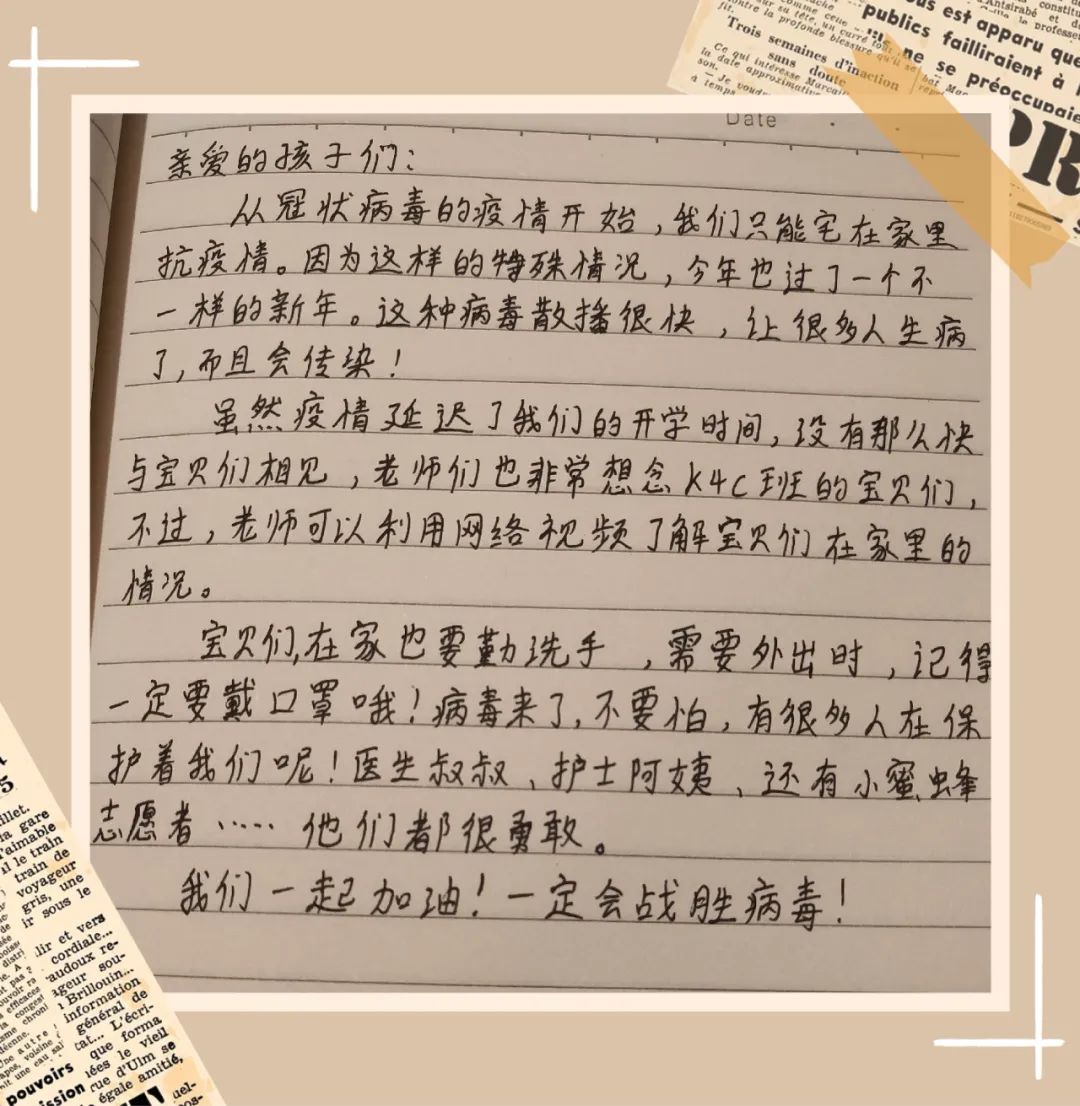 comme cette
sur sa tête, un carré
contre la profonde blessure qu'il se
Trois semaines d'inaction
sans doute
Ce qui intéresse
la date approximative
son.
— Je voudr
à temps
ous est apparu que
publics failliraient à
ne se préoccupaie
PR
Date
亲爱的孩子们：
从冠状病毒的疫情开始，我们只能宅在家里
抗疫情。因为这样的特殊情况，今年也过了一个不
一样的新年。这种病毒散播很快，让很多人生病
了，而且会传染！
虽然疫情延迟了我们的开学时间，没有那么快
与宝贝们相见，老师们也非常想念K4C班的宝贝们，
不过，老师可以利用网络视频了解宝贝们在家里的
情况。
宝贝们，在家也要勤洗手，需要外出时，记得
一定要戴口罩哦！病毒来了，不要怕，有很多人在保
护着我们呢！医生叔叔、护士阿姨、还有小蜜蜂
志愿者……他们都很勇敢。
我们一起加油！一定会战胜病毒！
5
illet.
la gare
l'aimable
il le train
train de
voyageur
gris, une
ir sous le
lir et vers
cordiale...
audoux re-
ageur sou-
Brillouin...
information
général de
cat... L'écri-
que forma
ées le vieil
rue d'Ulm se
égale amitié,
pouvoirs
ission